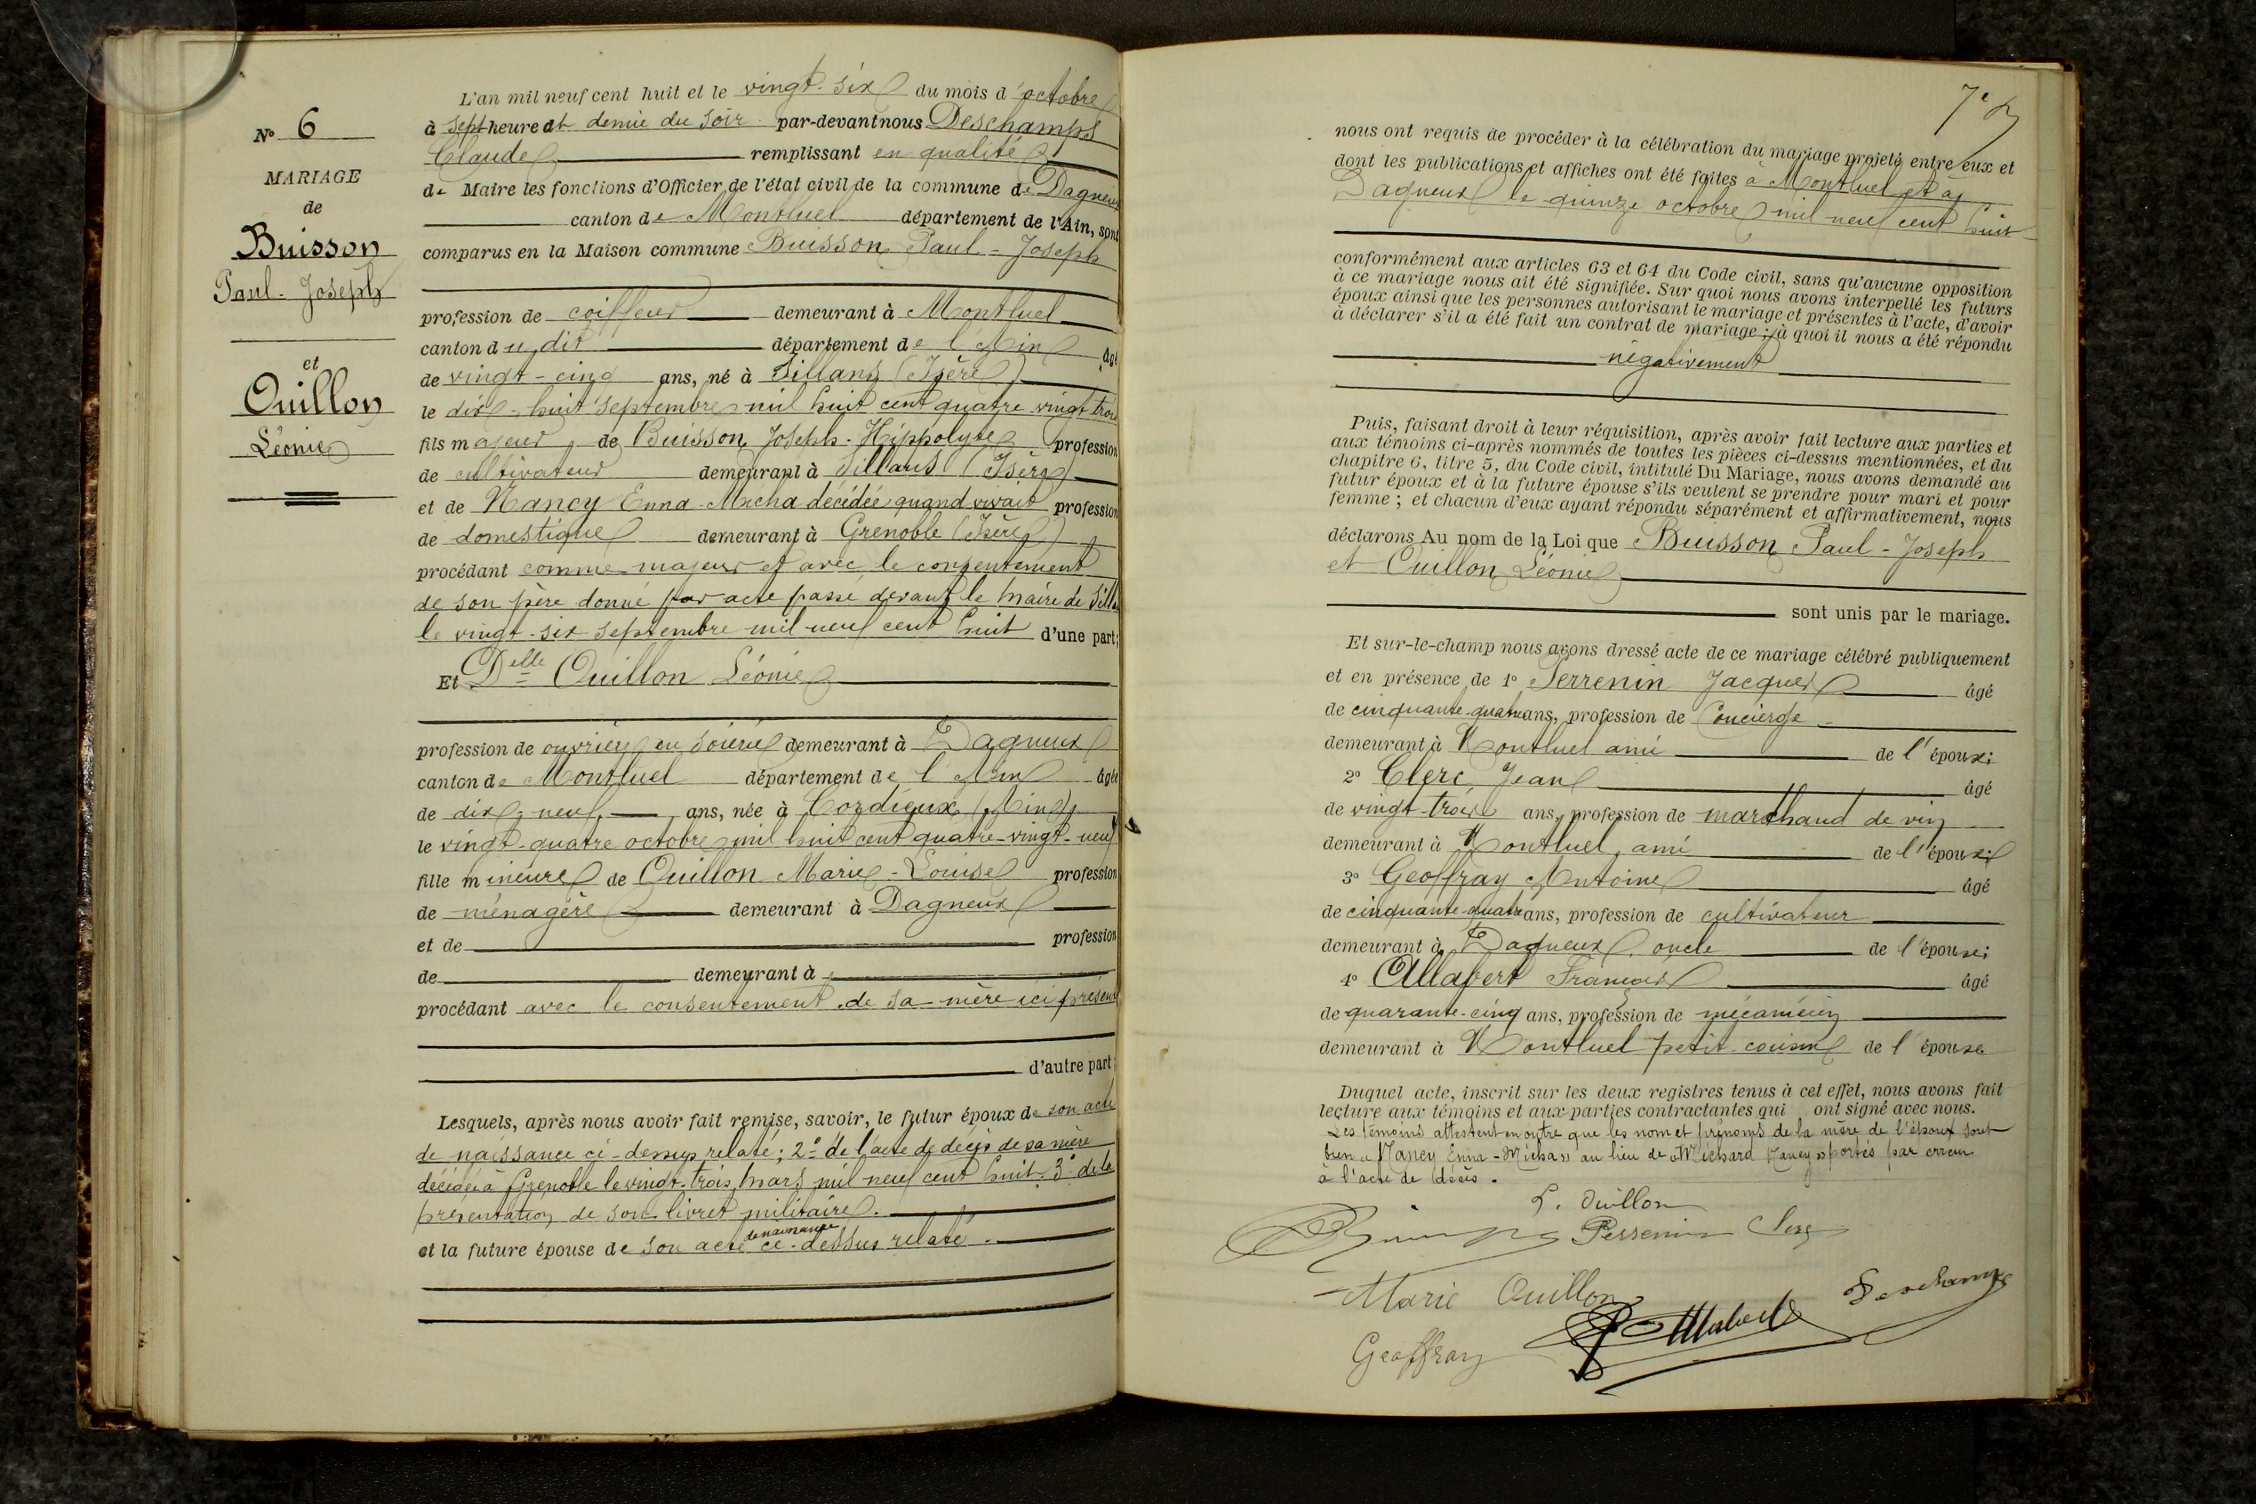 N° 6
MARIAGE
de
Buisson
Paul-Joseph
et
Ouillon
Léonie
L'an mil neuf cent huit et le vingt-six du mois d'octobre
à sept heure et demie du soir par-devant nous Deschamps
Claude remplissant en qualité
de Maire les fonctions d'Officier de l'état civil de la commune de Dagneux
canton de Montluel département de l'Ain, sont
comparus en la Maison commune Buisson Paul-Joseph
profession de coiffeur demeurant à Montluel
canton du dit département de l'Ain âgé
de vingt-cinq ans, né à Sillans (Isère)
le dix-huit septembre mil huit cent quatre-vingt trois
fils majeur de Buisson Joseph-Hippolyte profession
de cultivateur demeurant à Sillans (Isère)
et de Nancy Enna-Micha décédée quand vivait profession
de domestique demeurant à Grenoble (Isère)
procédant comme majeur et avec le consentement
de son père donné par acte passé devant le maire de Sillans
le vingt-six septembre mil neuf cent huit d'une part;
Et Delle Ouillon Léonie
profession de ouvrière en soierie demeurant à Dagneux
canton de Montluel département de l'Ain âgée
de dix-neuf ans, née à Cordieux (Ain)
le vingt-quatre octobre mil huit cent quatre-vingt-neuf
fille mineure de Ouillon Marie-Louise profession
de ménagère demeurant à Dagneux
et de profession
de demeurant à
procédant avec le consentement de sa mère ici présente
d'autre part;
Lesquels, après nous avoir fait remise, savoir, le futur époux de son acte
de naissance ci-dessus relaté; 2° de l'acte de décès de sa mère
décédée à Grenoble le vingt-trois mars mil neuf cent huit. 3° de la
présentation de son livret militaire.
et la future épouse de son acte de naissance ci-dessus relaté.
7e
nous ont requis de procéder à la célébration du mariage projeté entre eux et
dont les publications et affiches ont été faites à Montluel et à
Dagneux le quinze octobre mil neuf cent huit
conformément aux articles 63 et 64 du Code civil, sans qu'aucune opposition
à ce mariage nous ait été signifiée. Sur quoi nous avons interpellé les futurs
époux ainsi que les personnes autorisant le mariage et présentes à l'acte, d'avoir
à déclarer s'il a été fait un contrat de mariage; à quoi il nous a été répondu
négativement
Puis, faisant droit à leur réquisition, après avoir fait lecture aux parties et
aux témoins ci-après nommés de toutes les pièces ci-dessus mentionnées, et du
chapitre 6, titre 5, du Code civil, intitulé Du Mariage, nous avons demandé au
futur époux et à la future épouse s'ils veulent se prendre pour mari et pour
femme; et chacun d'eux ayant répondu séparément et affirmativement, nous
déclarons Au nom de la Loi que Buisson Paul-Joseph
et Ouillon Léonie
sont unis par le mariage.
Et sur-le-champ nous avons dressé acte de ce mariage célébré publiquement
et en présence de 1° Perrenin Jacques âgé
de cinquante-quatre ans, profession de Concierge
demeurant à Montluel ami de l'époux;
2° Clerc Jean âgé
de vingt-trois ans, profession de marchand de vin
demeurant à Montluel, ami de l'époux;
3° Geoffray Antoine âgé
de cinquante-quatre ans, profession de cultivateur
demeurant à Dagneux oncle de l'épouse;
4° Allabert François âgé
de quarante-cinq ans, profession de mécanicien
demeurant à Montluel petit-cousin de l'épouse
Duquel acte, inscrit sur les deux registres tenus à cet effet, nous avons fait
lecture aux témoins et aux parties contractantes qui ont signé avec nous.
Les témoins attestent en outre que les nom et prénoms de la mère de l'époux sont
bien « Nancy Enna-Micha » au lieu de « Michard Nancy » portés par erreur
à l'acte de décès.
L. Ouillon
Perrenin Clerc
Marie Ouillon Deschamps
Geoffray Allabert